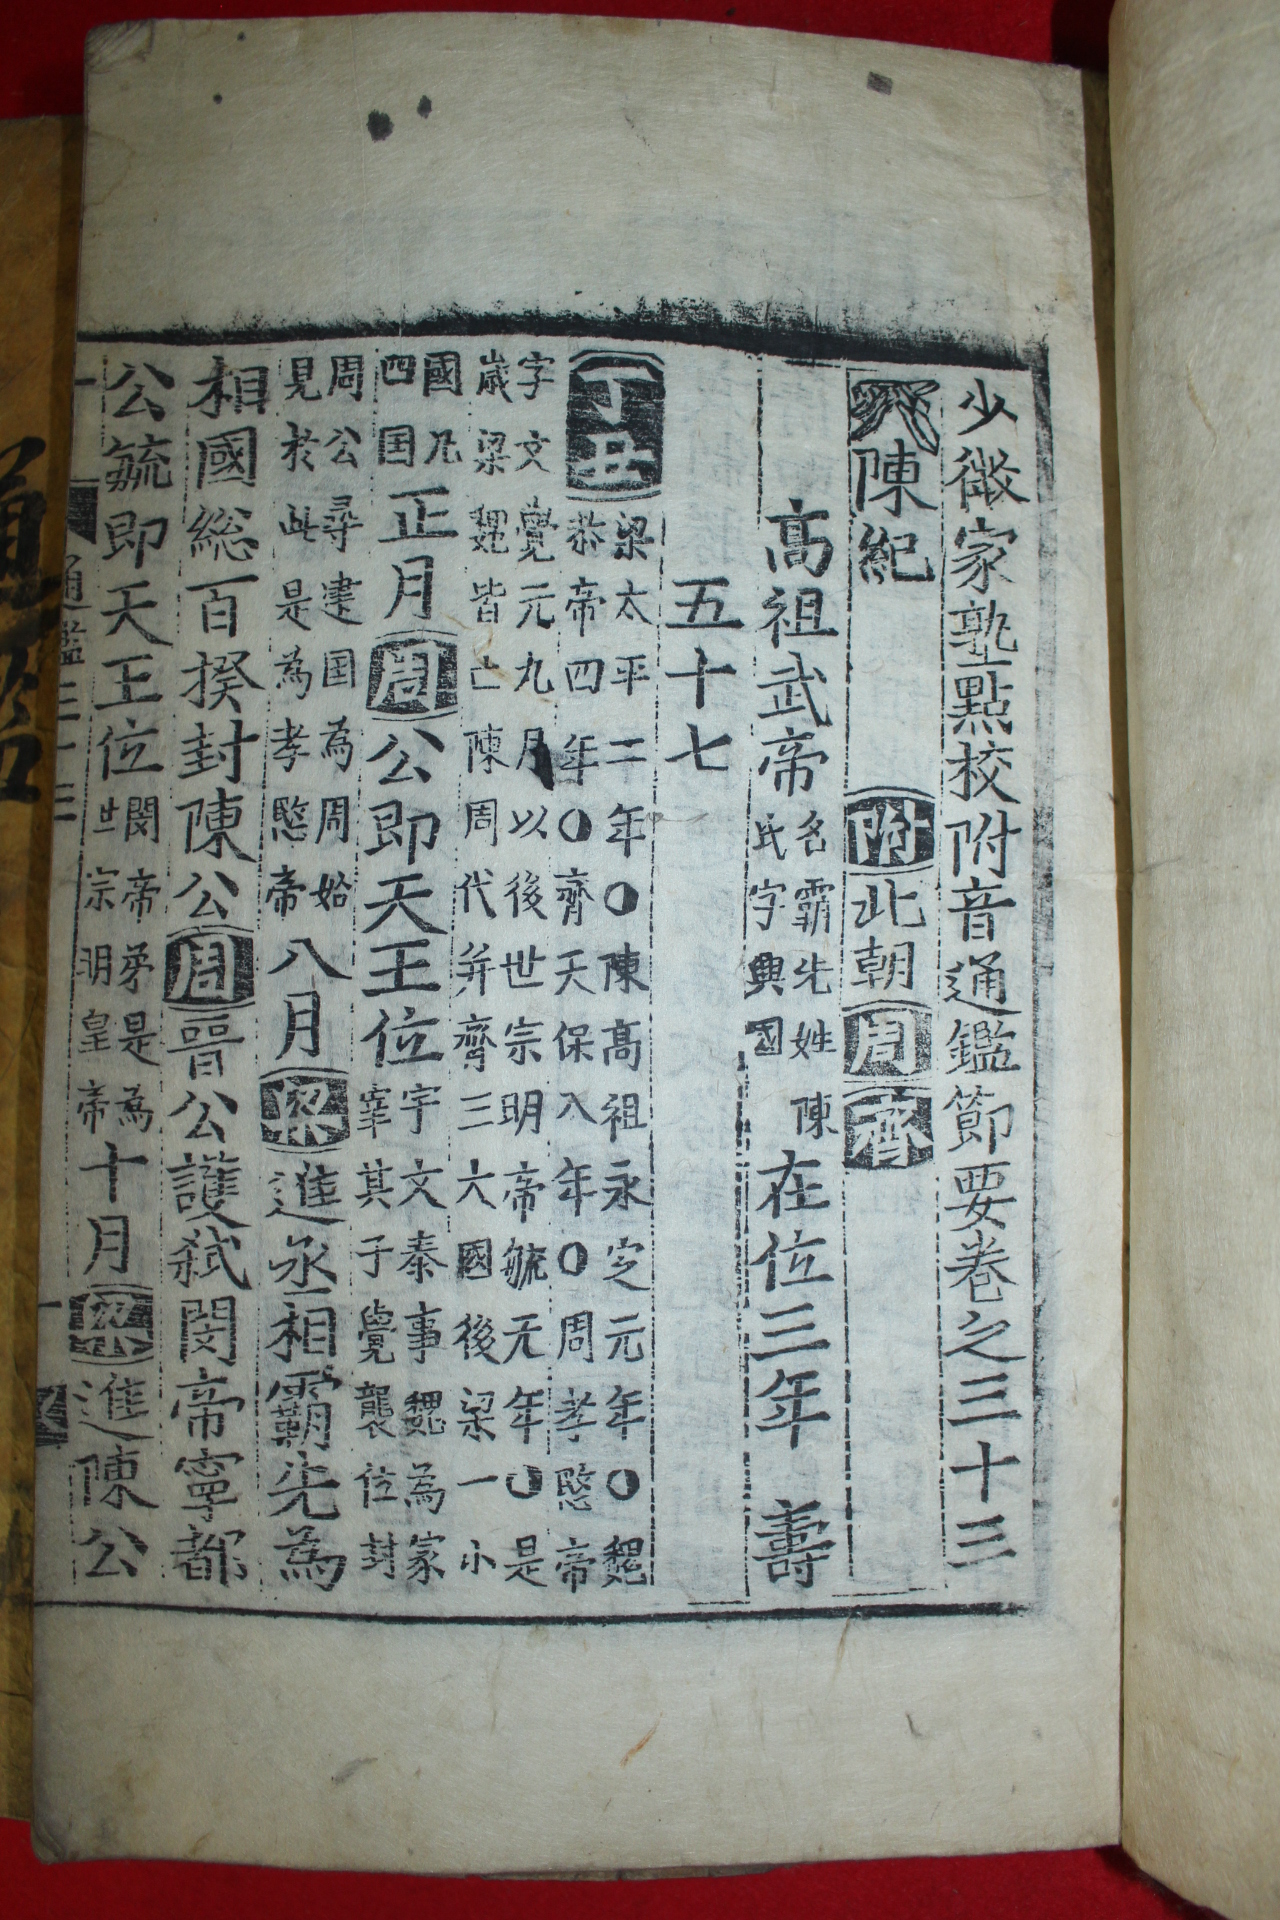 少微家塾點校附音通鑑節要卷之三十三
陳紀 附北朝周齊
高祖武帝 名霸先姓陳氏字興國 在位三年 壽
五十七
丁丑 梁太平二年○陳高祖永定元年○魏恭帝四年○齊天保八年○周孝愍帝
宇文覺元九月以後世宗明帝毓元年○是歲梁魏皆亡陳周代并齊三大國後梁一小
國凡四国 正月周公即天王位 宇文泰事魏為冢宰其子覺襲位封
周公尋建国為周始見於此是為孝愍帝 八月梁進丞相霸先為
相國総百揆封陳公周晉公護弑閔帝寧都
公毓即天王位 閔帝弟是為世宗明皇帝 十月梁進陳公
通鑑三十三
一